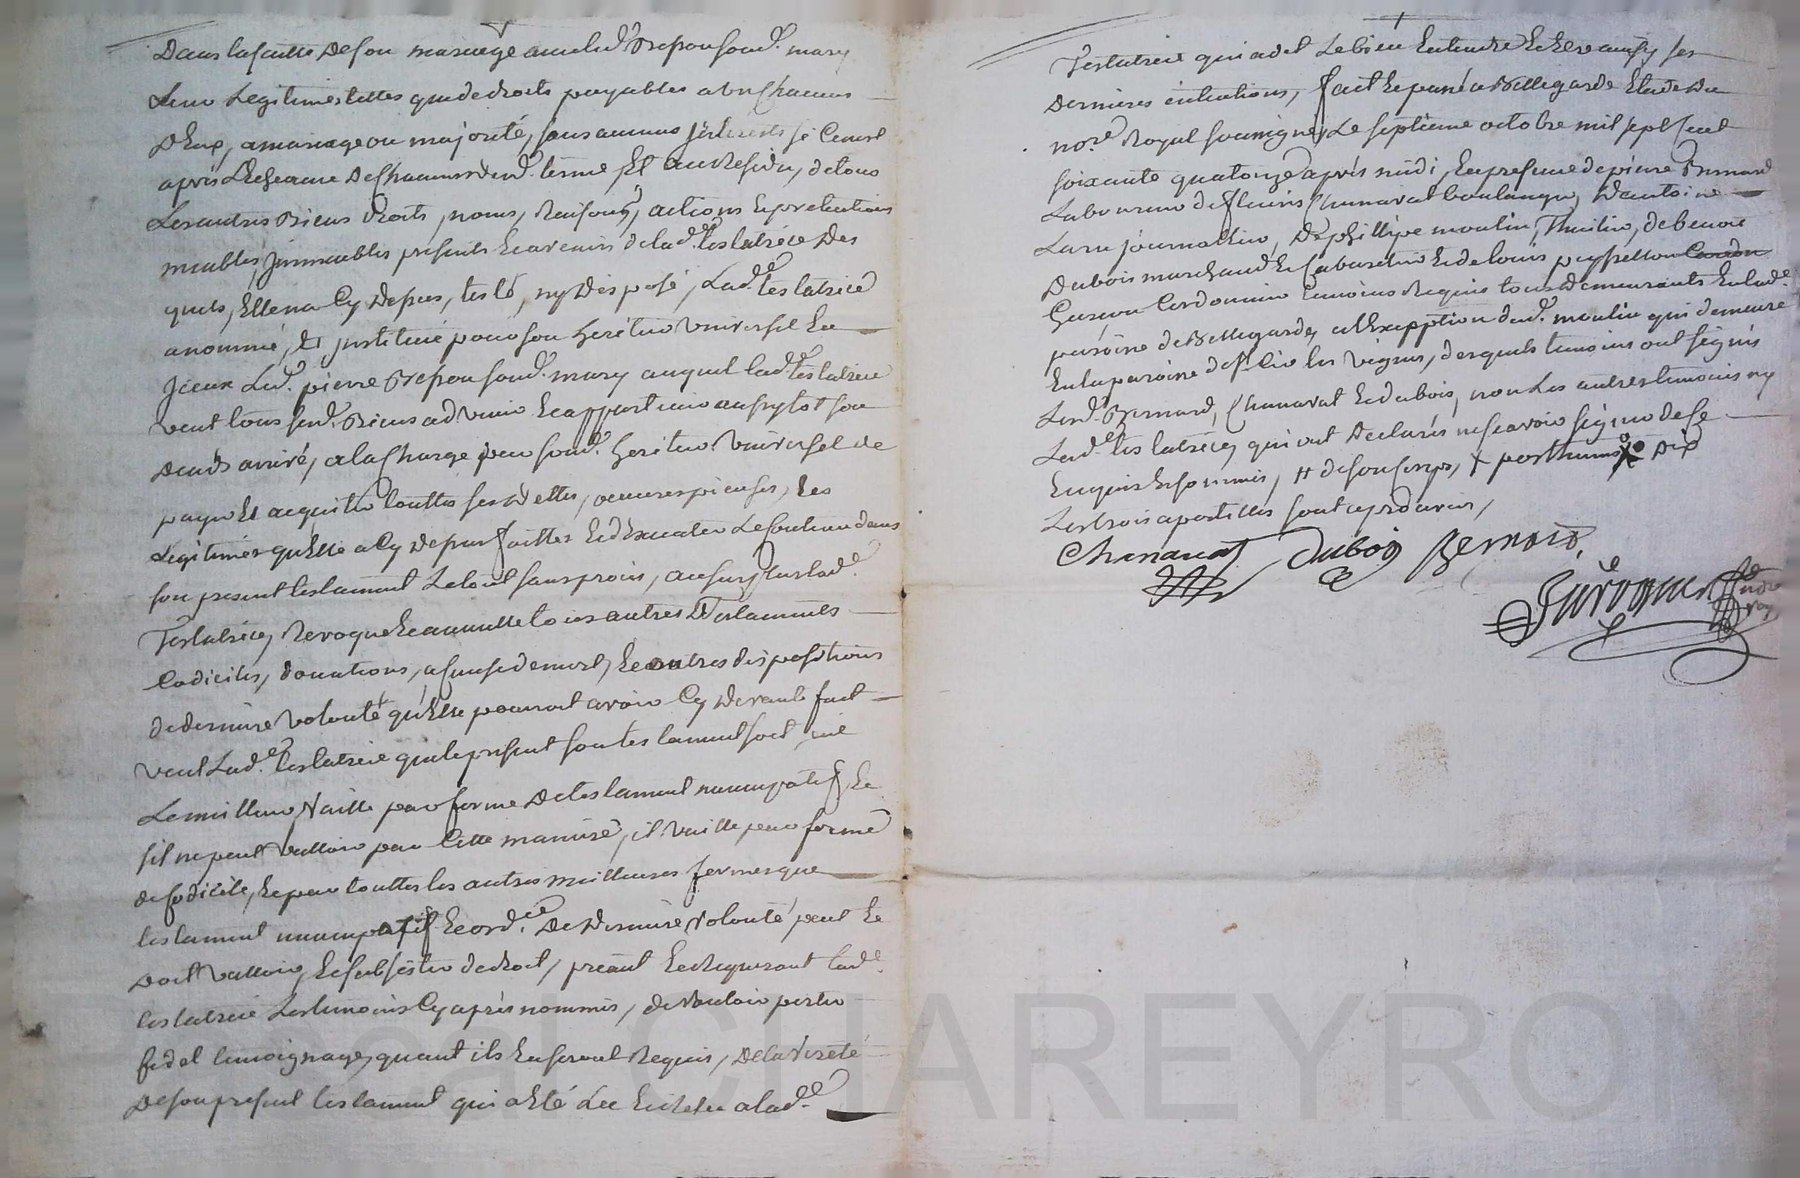 Dans la suitte de son mariage avec led.t Brepon son d.t mary
Leur Legitimes telles que de droits payables a un Chacuns
D'Eux, a mariage ou majorité, sans aucuns jnterests si Ce n'est
après L'Echeance De Chacuns desd.t terme Et au Residu, de tous
Les autres Biens droits, noms, Raisons, actions Et pretentions
meubles, jmmeubles presents Et avenirs de lad.te testatrice Des
quels, Elle n'a Cy Depuis, testé, ny Disposé, Lad.te testatrice
a nommé, Et jnstitué pour son heritier Universel En
jceux Led.t pierre Brepon sond.t mary auquel lad.te testatrice
veut tous sesd.t Biens advenir Et appartenir aussytot son
Decéds arrivé, a la Charge pour sond.t heritier Universel de
payer Et acquitter touttes ses dettes, oeuvres pieuses, Les
Legitimes qu'Elle a Cy Depuis faittes Et d'Executer Le Contenu dans
son present testament Le tout sans procès, au surplus lad.te
Testatrice, Revoque Et annulle tous autres Testaments
Codiciles, donations, a Cause de mort, Et autres dispositions
de derniere Volonté qu'Elle pourroit avoir Cy Devant fait
veut Lad.te testatrice que le present son testament soit, cie
Le meilleur, Vaille par forme De testament nuncupatif, Et
s'il ne peut Valloir par Cette maniere, il Vaille par forme
de Codicile, Et par touttes les autres meilleures formes que
testament nuncupatif Et ord.ce De Derniere Volonté peut Et
Doit Valloir, Et subsister de droit, priant Et Requerant lad.te
testatrice Les temoins Cy après nommés, de Vouloir porter
fidel temoignage, quant ils En seront Requis, De la Verité
De son present testament qui a Eté Lu Et Relu a lad.te
Testatrice qui a dit Le bien Entendre Et Etre ainsy ses
Dernieres intentions, fait Et passé a Bellegarde Etude Du
no.re Royal soussigné, Le septieme octobre mil sept Cent
soixante quatorze après midi, En presence de pierre Bernard
Laboureur de fleurieu Chanavat boulanger, D'antoine
Laru journallier, De phillipe moulin, Thuilier, de benoit
Dubois marchand Et Cabaretier Et de Louis peysselon Cordon
Garçon Cordonnier temoins Requis tous Demeurants En lad.te
paroisse de Bellegarde, a l'Exepption dud.t moulin qui demeure
En la paroisse de S.t Cir les Vignes, desquels temoins ont signés
Lesd.t Bernard, Chanavat Et dubois, non Les autres temoins ny
Lad.te testatrice, qui ont Declarés ne scavoir signer de Ce
Enquis Et sommés, # de son Corps, X posthumes X dix
Les trois apostilles sont aprouvées,
Chanavat Dubois Bernard,
Guyonnet
no.re
Roy.